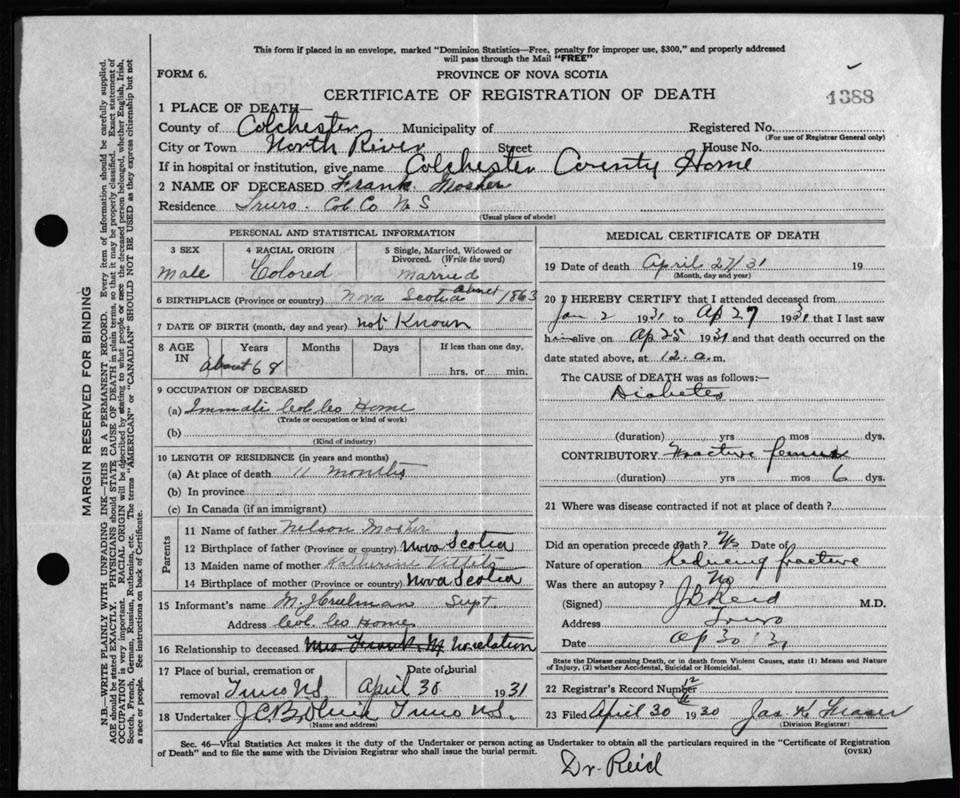 This form if placed in an envelope, marked "Dominion Statistics—Free, penalty for improper use, $300," and properly addressed
will pass through the Mail "FREE"
FORM 6.
PROVINCE OF NOVA SCOTIA
CERTIFICATE OF REGISTRATION OF DEATH
1388
1 PLACE OF DEATH—
County of Colchester Municipality of Registered No.
(For use of Registrar General only)
City or Town North River Street House No.
If in hospital or institution, give name Colchester County Home
2 NAME OF DECEASED Frank Mosher
Residence Truro. Col. Co. N S
(Usual place of abode)
PERSONAL AND STATISTICAL INFORMATION
3 SEX 4 RACIAL ORIGIN 5 Single, Married, Widowed or
Divorced. (Write the word)
Male Colored married
6 BIRTHPLACE (Province or country) Nova Scotia about 1863
7 DATE OF BIRTH (month, day and year) not Known
8 AGE IN Years Months Days If less than one day,
about 68 hrs. or min.
9 OCCUPATION OF DECEASED
(a) Home
(Trade or occupation or kind of work)
(b)
(Kind of industry)
10 LENGTH OF RESIDENCE (in years and months)
(a) At place of death 11 months
(b) In province
(c) In Canada (if an immigrant)
Parents
11 Name of father Nelson Mosher
12 Birthplace of father (Province or country) Nova Scotia
13 Maiden name of mother Katherine
14 Birthplace of mother (Province or country) Nova Scotia
15 Informant's name M. J. Creelman Supt
Address Home
16 Relationship to deceased Mrs Frank M no relation
17 Place of burial, cremation or Date of burial
removal Truro NS. April 30 1931
18 Undertaker J C B Truro NS.
(Name and address)
MEDICAL CERTIFICATE OF DEATH
19 Date of death April 27/31 19
(Month, day and year)
20 I HEREBY CERTIFY that I attended deceased from
Jan 2 1931 to Ap 27 1931 that I last saw
him alive on Ap 25 1931 and that death occurred on the
date stated above, at 12 a.m.
The CAUSE of DEATH was as follows:—
Diabetes
(duration) yrs mos dys.
CONTRIBUTORY Fracture femur
(duration) yrs mos 6 dys.
21 Where was disease contracted if not at place of death?
Did an operation precede death? Yes Date of
Nature of operation Reducing fracture
Was there an autopsy? No
(Signed) J B Reid M.D.
Address Truro
Date Ap 30 31
State the Disease causing Death, or in death from Violent Causes, state (1) Means and Nature
of Injury, (2) whether Accidental, Suicidal or Homicidal.
22 Registrar's Record Number 12
23 Filed April 30 1930 Jas H Fraser
(Division Registrar)
Sec. 46—Vital Statistics Act makes it the duty of the Undertaker or person acting as Undertaker to obtain all the particulars required in the "Certificate of Registration
of Death" and to file the same with the Division Registrar who shall issue the burial permit. (OVER)
Dr. Reid
MARGIN RESERVED FOR BINDING
N.B.—WRITE PLAINLY WITH UNFADING INK—THIS IS A PERMANENT RECORD. Every item of information should be carefully supplied.
AGE should be stated EXACTLY. PHYSICIANS should STATE CAUSE OF DEATH in plain terms, so that it may be properly classified. Exact statement of
OCCUPATION is very important. RACIAL ORIGIN will be described by stating to what people or race the deceased person belonged, whether English, Irish,
Scotch, French, German, Russian, Ruthenian, etc. The terms "AMERICAN" or "CANADIAN" SHOULD NOT BE USED as they express citizenship but not
a race or people. See instructions on back of Certificate.